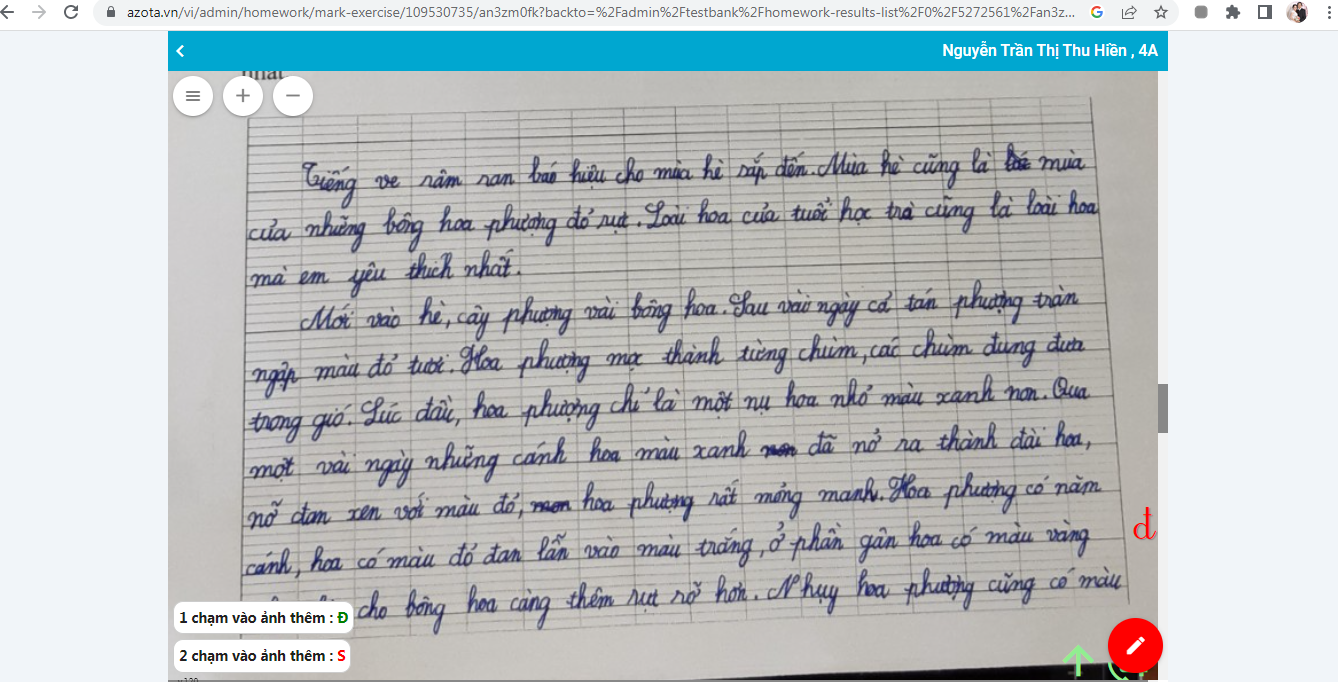 azota.vn/vi/admin/homework/mark-exercise/109530735/an3zm0fk?backto=%2Fadmin%2Ftestbank%2Fhomework-results-list%2F0%2F5272561%2Fan3z...
Nguyễn Trần Thị Thu Hiền , 4A
nhất
Tiếng ve râm ran báo hiệu cho mùa hè sắp đến. Mùa hè cũng là mùa
của những bông hoa phượng đỏ rực. Loài hoa của tuổi học trò cũng là loài hoa
mà em yêu thích nhất.
Mới vào hè, cây phượng vài bông hoa. Sau vài ngày cả tán phượng tràn
ngập màu đỏ tươi. Hoa phượng mọc thành từng chùm, các chùm đung đưa
trong gió. Lúc đầu, hoa phượng chỉ là một nụ hoa nhỏ màu xanh non. Qua
một vài ngày những cánh hoa màu xanh đã nở ra thành đài hoa,
nỗ đan xen với màu đỏ, hoa phượng rất mỏng manh. Hoa phượng có năm
cánh, hoa có màu đỏ đan lẫn vào màu trắng, ở phần gân hoa có màu vàng
đ
cho bông hoa càng thêm rực rỡ hơn. Nhụy hoa phượng cũng có màu
1 chạm vào ảnh thêm : Đ
2 chạm vào ảnh thêm : S